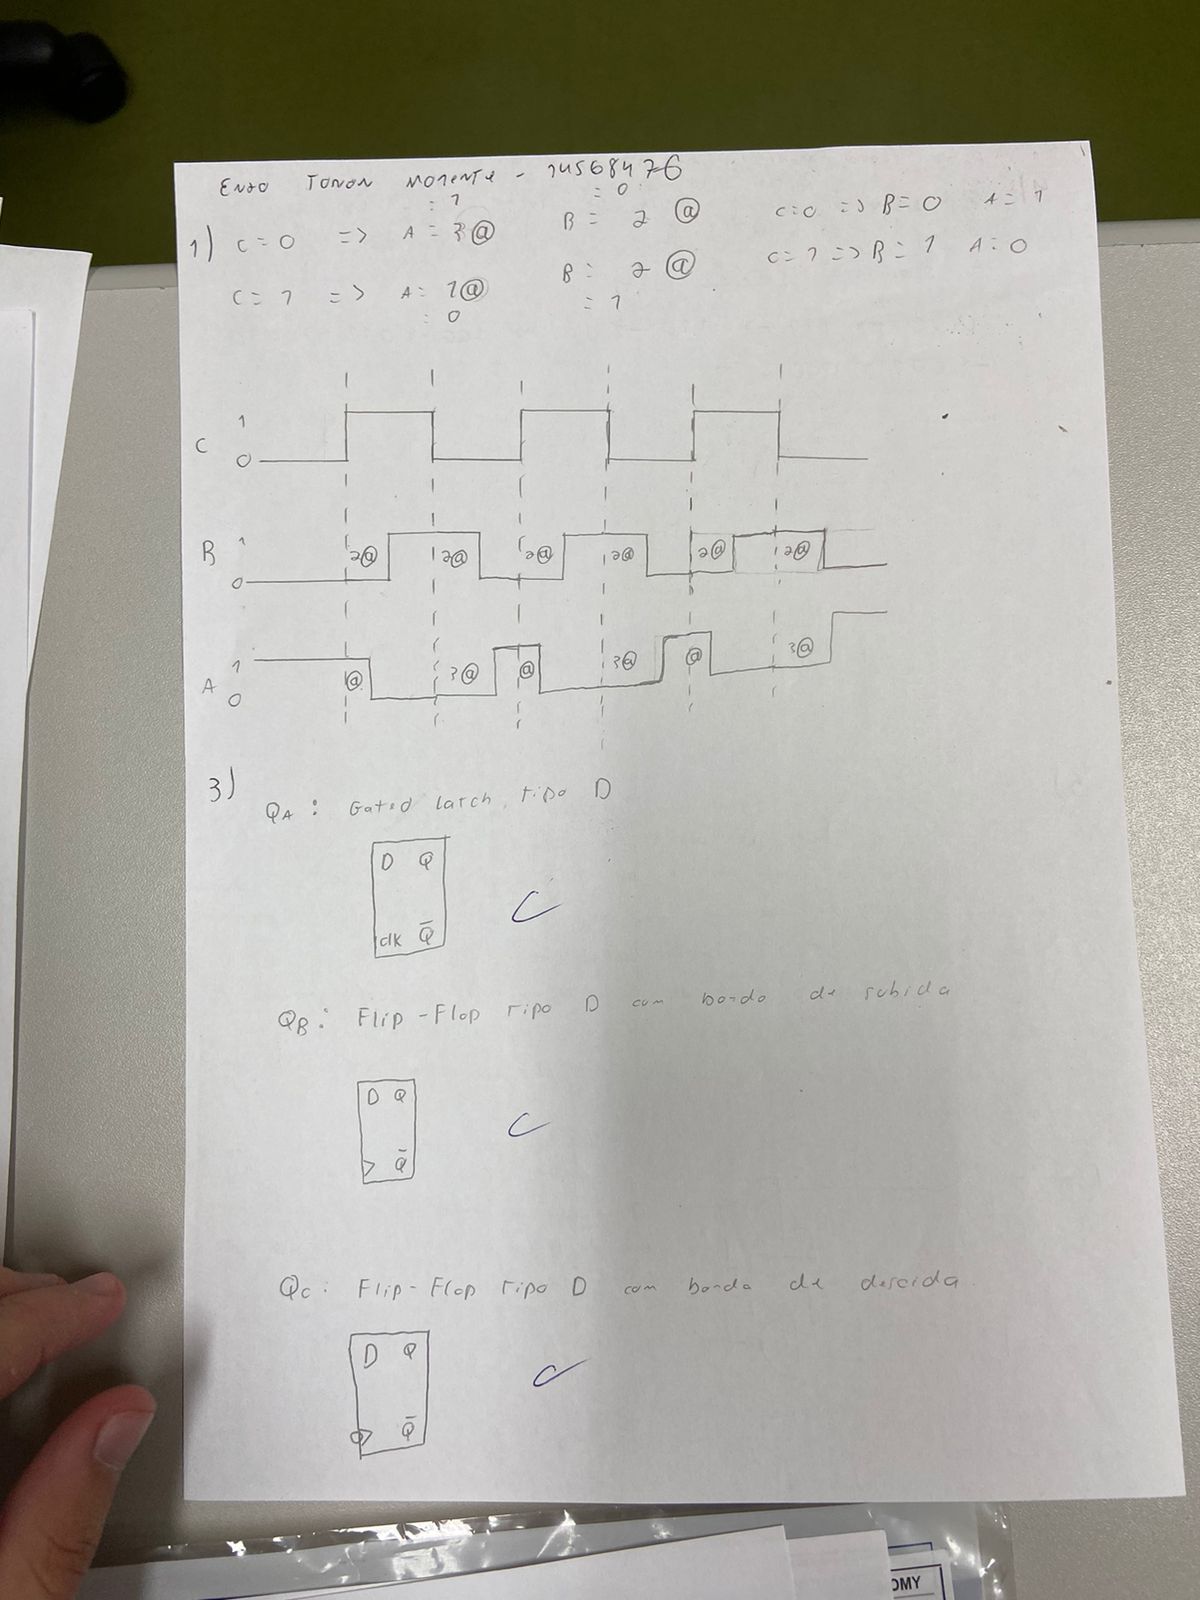 Enzo Tonon Morente - 14568476
= 1 = 0
1) C = 0 => A = 3@ B = 2 @ C=0 => B = 0 A = 1
C = 1 => A = 1@ B = 2 @ C = 1 => B = 1 A = 0
= 0 = 1
C 1
0
B 1
0
2@ 2@ 2@ 2@ 2@ 2@
A 1
0
@ 3@ @ 3@ @ 3@
3)
QA : Gated latch tipo D
D Q
clk Q̅
C
QB : Flip-Flop tipo D com borda de subida
D Q
> Q̅
C
QC : Flip-Flop tipo D com borda de descida
D Q
> Q̅
C
OMY